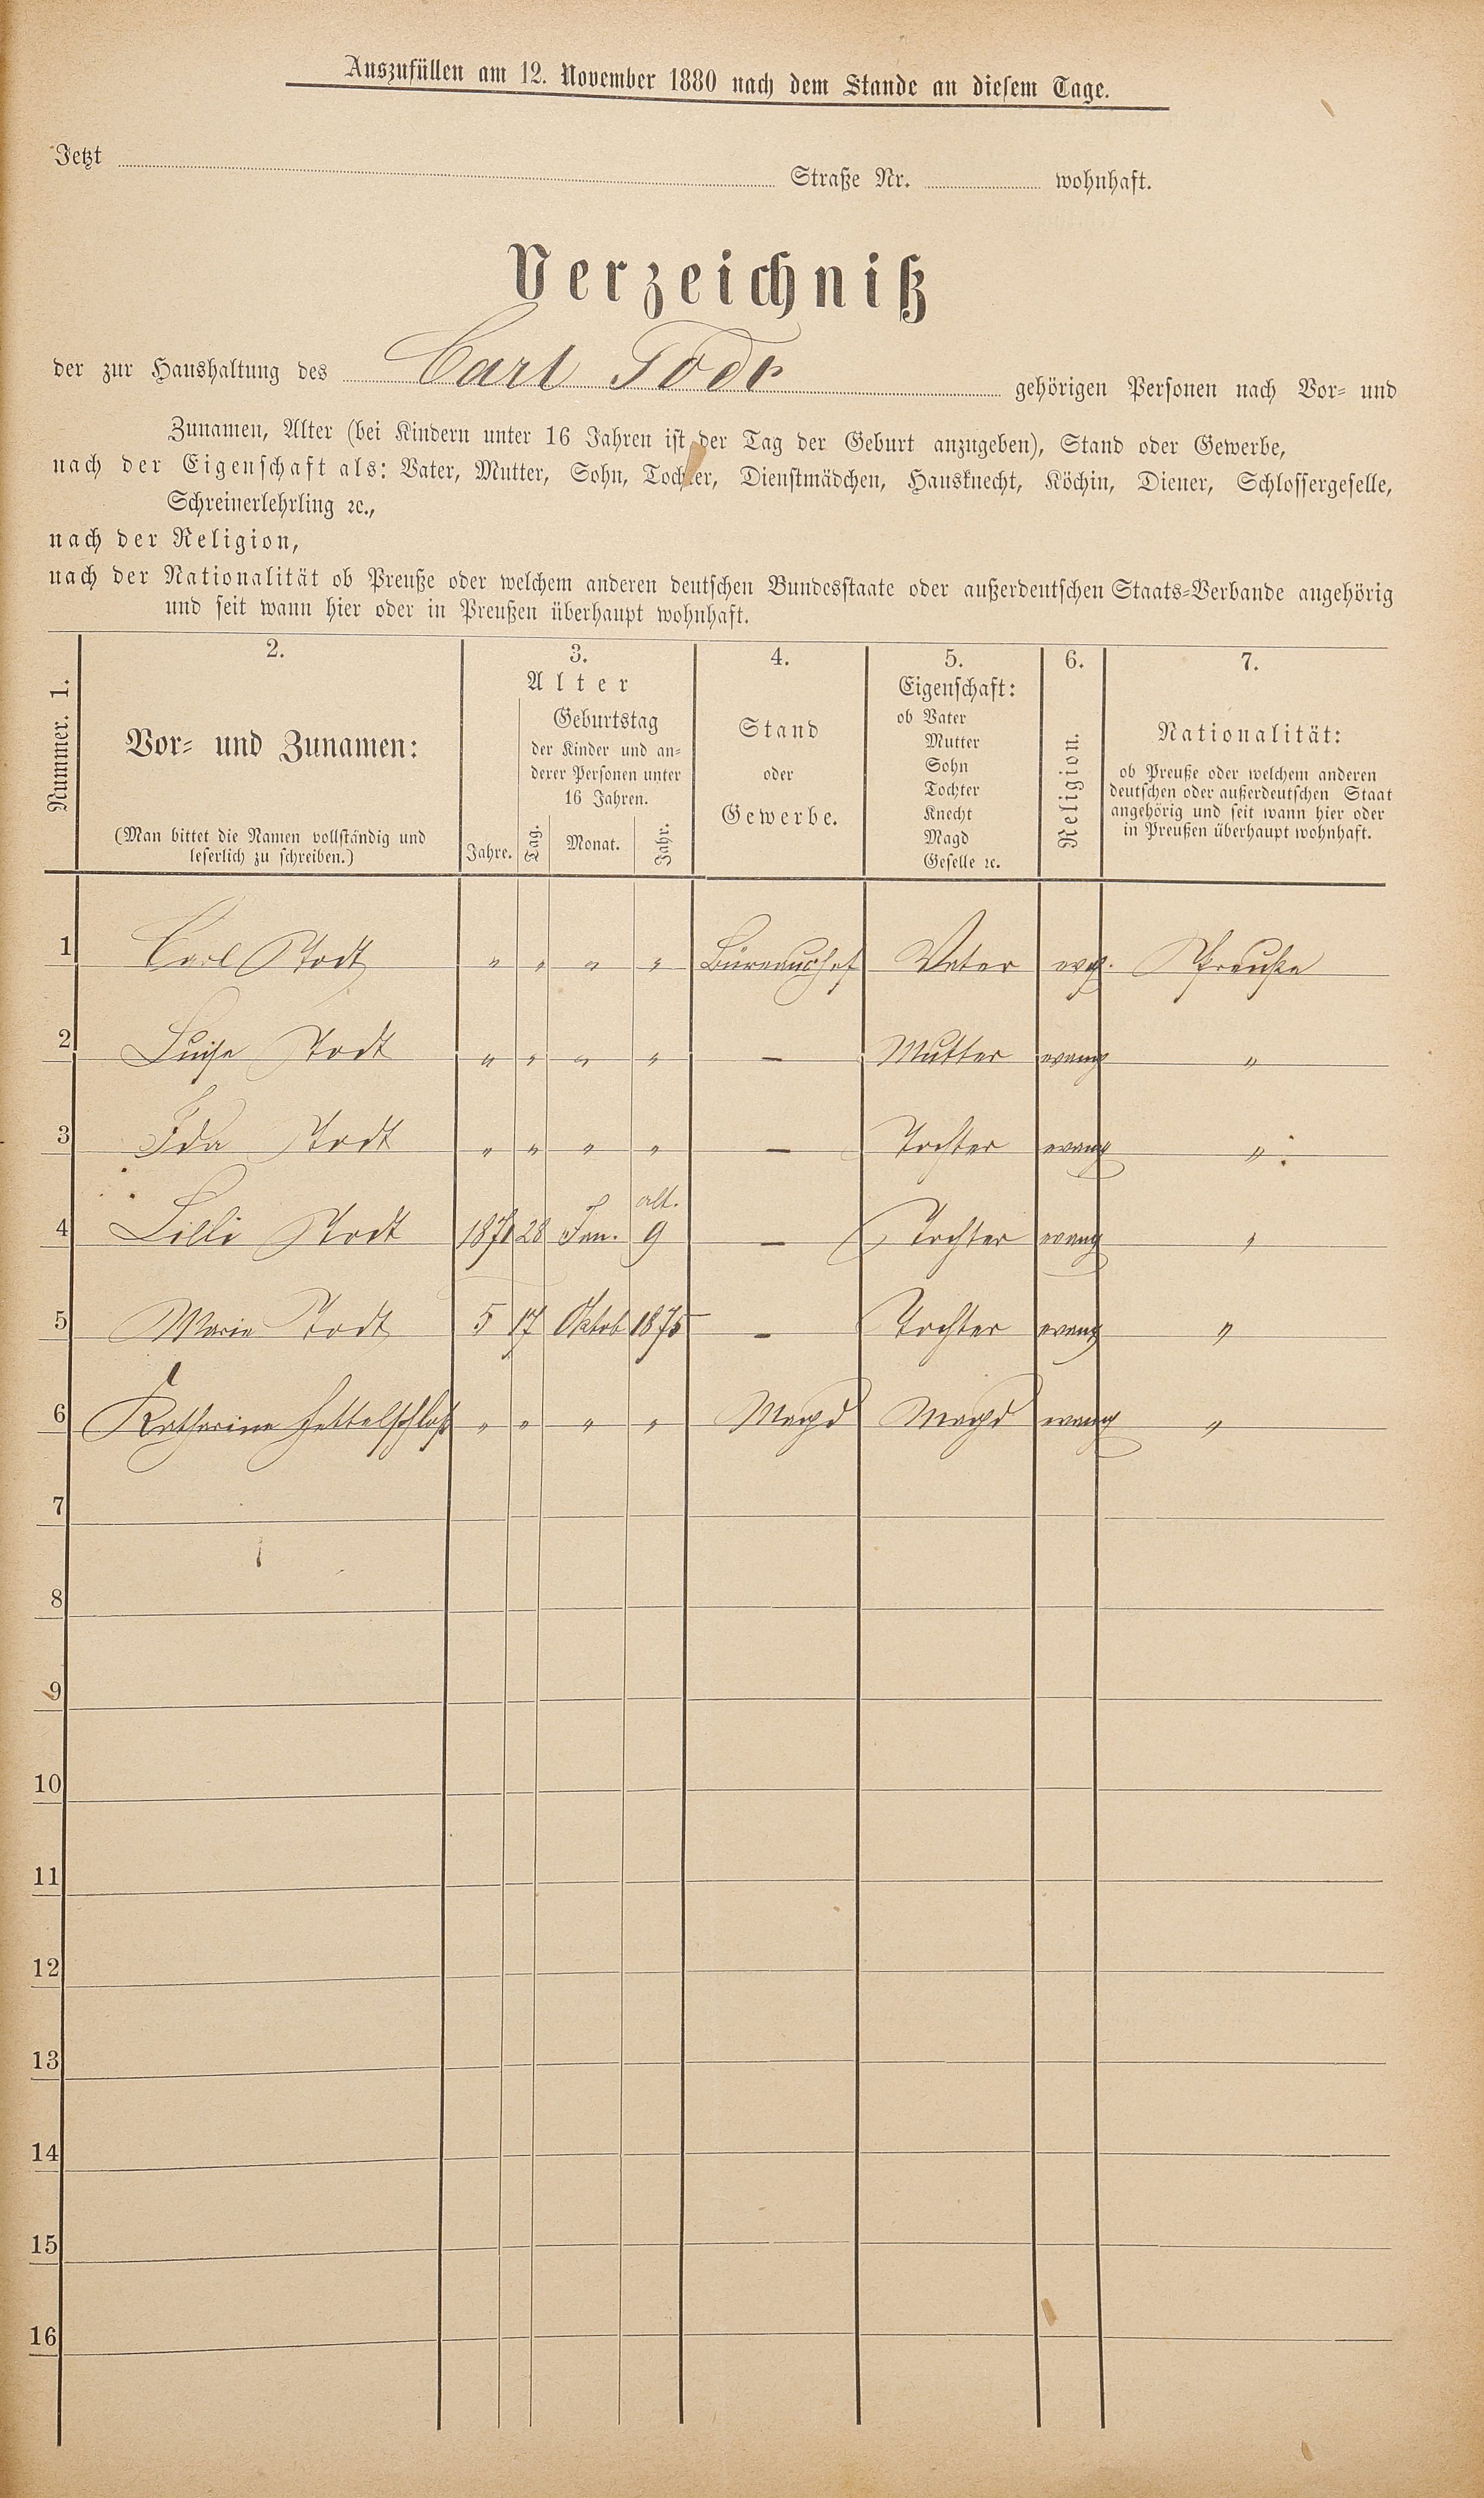 Auszufüllen am 12. November 1880 nach dem Stande an diesem Tage.
Jetzt Straße Nr. wohnhaft.
Verzeichniß
der zur Haushaltung des Carl Todt gehörigen Personen nach Vor- und
Zunamen, Alter (bei Kindern unter 16 Jahren ist der Tag der Geburt anzugeben), Stand oder Gewerbe,
nach der Eigenschaft als: Vater, Mutter, Sohn, Tochter, Dienstmädchen, Hausknecht, Köchin, Diener, Schlossergeselle,
Schreinerlehrling ꝛc.,
nach der Religion,
nach der Nationalität ob Preuße oder welchem anderen deutschen Bundesstaate oder außerdeutschen Staats-Verbande angehörig
und seit wann hier oder in Preußen überhaupt wohnhaft.
Nummer. 1.
2.
Vor- und Zunamen:
(Man bittet die Namen vollständig und
leserlich zu schreiben.)
3.
Alter
Jahre.
Geburtstag
der Kinder und an-
derer Personen unter
16 Jahren.
Tag. Monat. Jahr.
4.
Stand
oder
Gewerbe.
5.
Eigenschaft:
ob Vater
Mutter
Sohn
Tochter
Knecht
Magd
Geselle ꝛc.
6.
Religion.
7.
Nationalität:
ob Preuße oder welchem anderen
deutschen oder außerdeutschen Staat
angehörig und seit wann hier oder
in Preußen überhaupt wohnhaft.
1 Carl Todt " " " " Büreauchef Vater evg. Preuße
2 Luise Todt " " " " — Mutter evang "
3 Ida Todt " " " " — Tochter evang "
alt.
4 Lilli Todt 1871 28 Jan. 9 — Tochter evang "
5 Marie Todt 5 17 Oktob 1875 — Tochter evang "
6 Katharina " " " " Magd Magd evang "
7
8
9
10
11
12
13
14
15
16